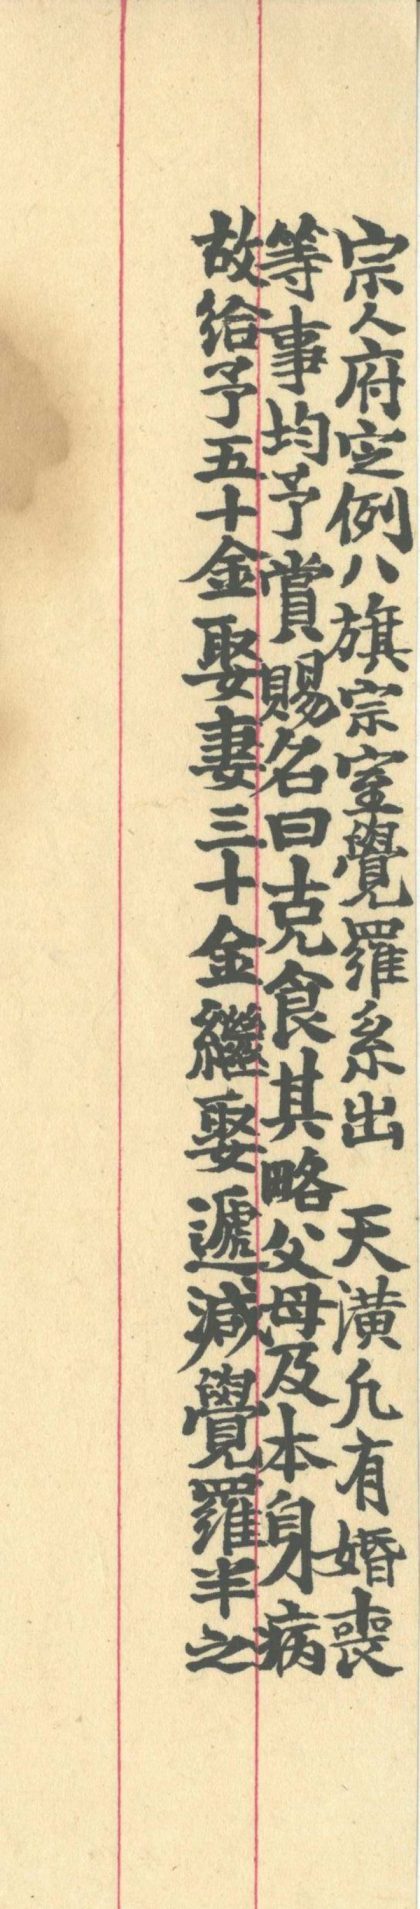 宗人府定例八旗宗室覺羅系出　天潢凡有婚喪
等事均予賞賜名曰克食其略父母及本身病
故給予五十金娶妻三十金繼娶遞減覺羅半之